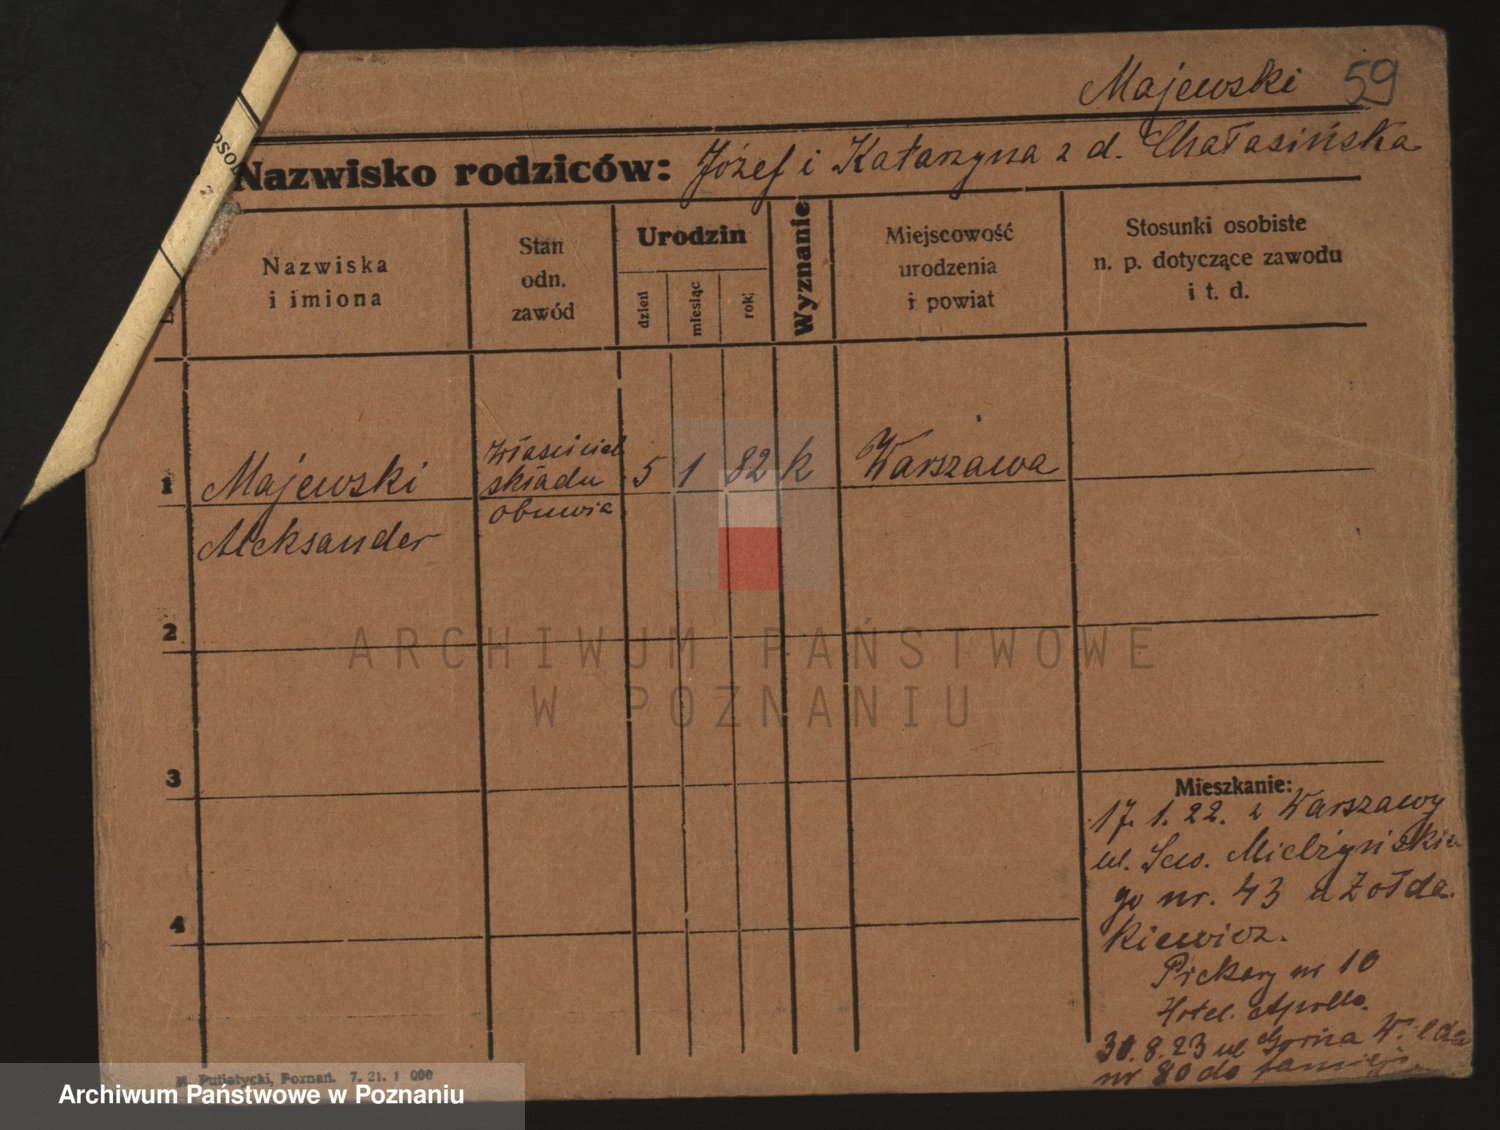 Majewski 59
Nazwisko rodziców: Józef i Katarzyna z d. Chałasińska
Nazwiska i imiona
Stan odn. zawód
Urodzin
dzień
miesiąc
rok
Wyznanie
Miejscowość urodzenia i powiat
Stosunki osobiste n. p. dotyczące zawodu i t. d.
1 Majewski właściciel 5 1 82 k Warszawa
Aleksander składu
obuwia
2
3
4
Mieszkanie:
17. 1. 22. z Warszawy
ul. Sew. Mielżyńskie
go nr. 43 u Żołda
kiewicz.
Piekary nr 10
Hotel. Apollo.
30.8.23 ul Górna Wilda
nr 80 do
Putiatycki, Poznań. 7. 21. 1 000
ARCHIWUM PAŃSTWOWE
W POZNANIU
Archiwum Państwowe w Poznaniu